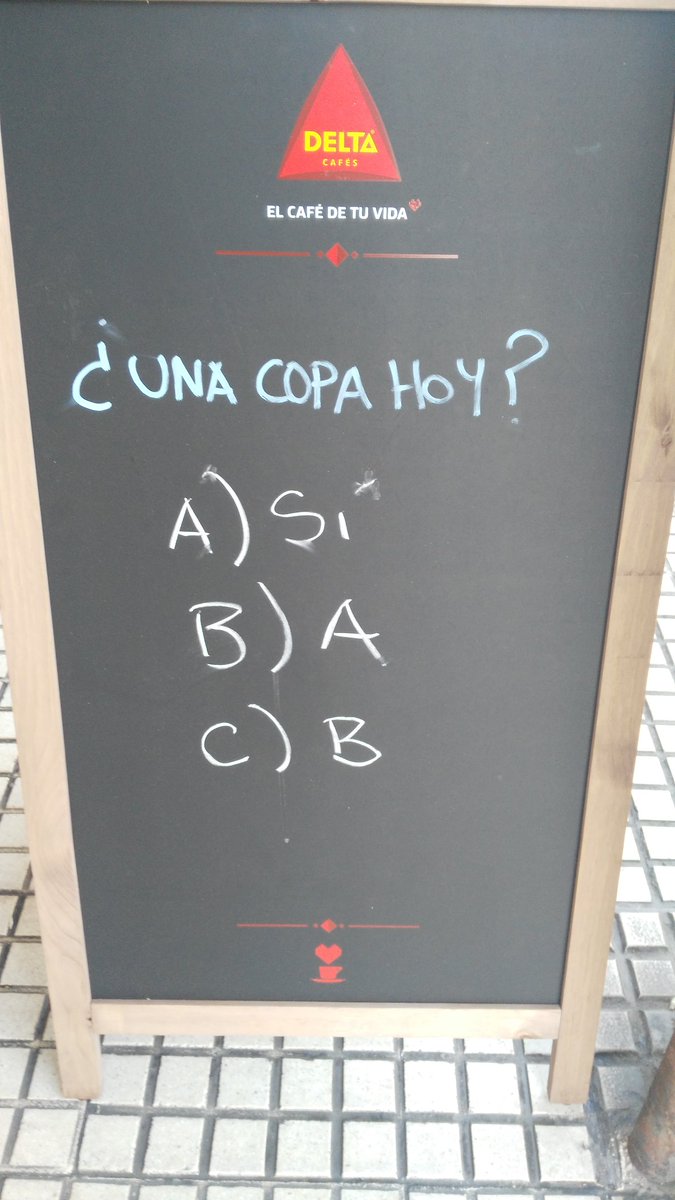 DELTA
CAFÉS
EL CAFÉ DE TU VIDA
¿UNA COPA HOY?
A) Sí
B) A
C) B